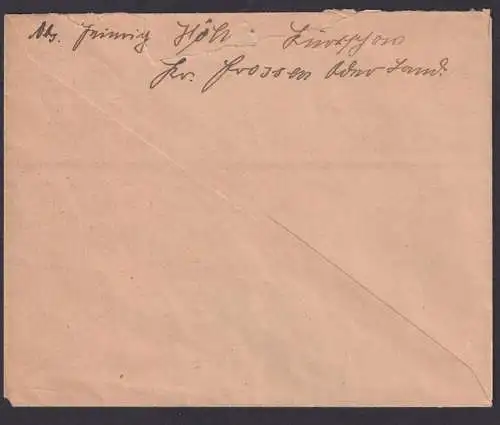 Abs. Heinrich Höhl Kürtschow
Kr. Crossen Oder Land.